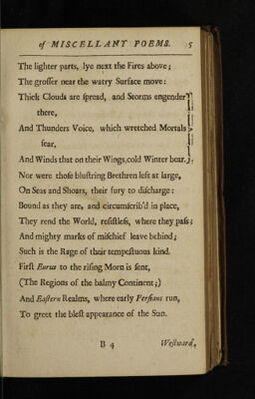 of MISCELLANY POEMS. 5
The lighter parts, lye next the Fires above;
The grosser near the watry Surface move:
Thick Clouds are spread, and Storms engender
there,
And Thunders Voice, which wretched Mortals
fear,
And Winds that on their Wings, cold Winter bear.
Nor were those blustring Brethren left at large,
On Seas and Shoars, their fury to discharge:
Bound as they are, and circumscrib'd in place,
They rend the World, resistless, where they pass;
And mighty marks of mischief leave behind;
Such is the Rage of their tempestuous kind.
First Eurus to the rising Morn is sent,
(The Regions of the balmy Continent;)
And Eastern Realms, where early Persians run,
To greet the blest appearance of the Sun.
B 4 Westward,